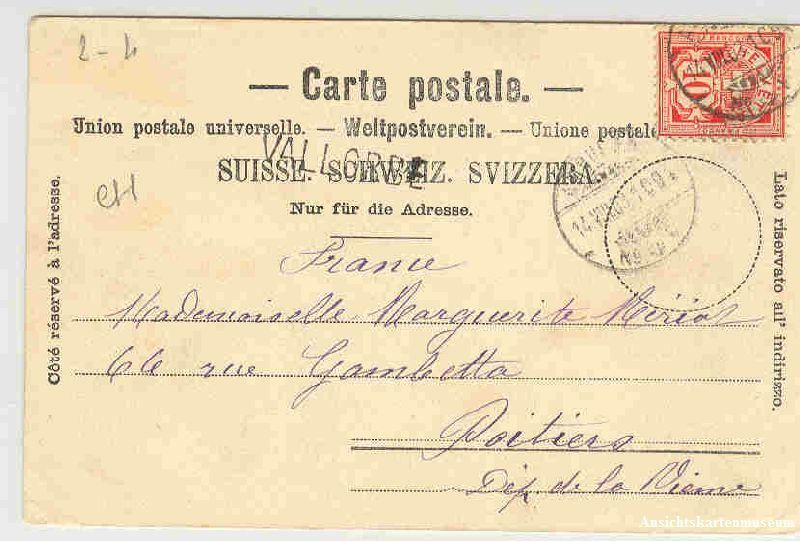 2-4
— Carte postale. —
Union postale universelle. — Weltpostverein. — Unione postale
VALLORBE
SUISSE. SCHWEIZ. SVIZZERA.
Nur für die Adresse.
CH
Côté réservé à l'adresse.
Lato riservato all' indirizzo.
France
Mademoiselle Marguerite
66 rue Gambetta
Poitiers
Dép. de la Vienne
FRANCO
HELVETIA
10
Ansichtskartenmuseum